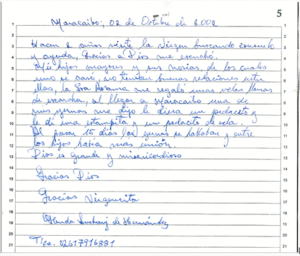 5
Maracaibo, 02 de Octubre de 2002
Hacen 2 años visite la Virgen buscando consuelo
y ayuda, Gracias a Dios me escuchó.
Mis hijos
uno se casó, no tenían buenas relaciones entre
ellas, la Sra Rosanna me regaló unas velas llenas
de escarcha, al llegar a Maracaibo una de
mis yernas me dijo le diera un pedacito y
le di una estampita y un pedacito de vela.
Al pasar 15 días las yernas se hablaban y entre
los hijos había más unión.
Dios es grande y misericordioso
Gracias Dios
Gracias Virgencita
de Hernández
Tlfo. 02617916881